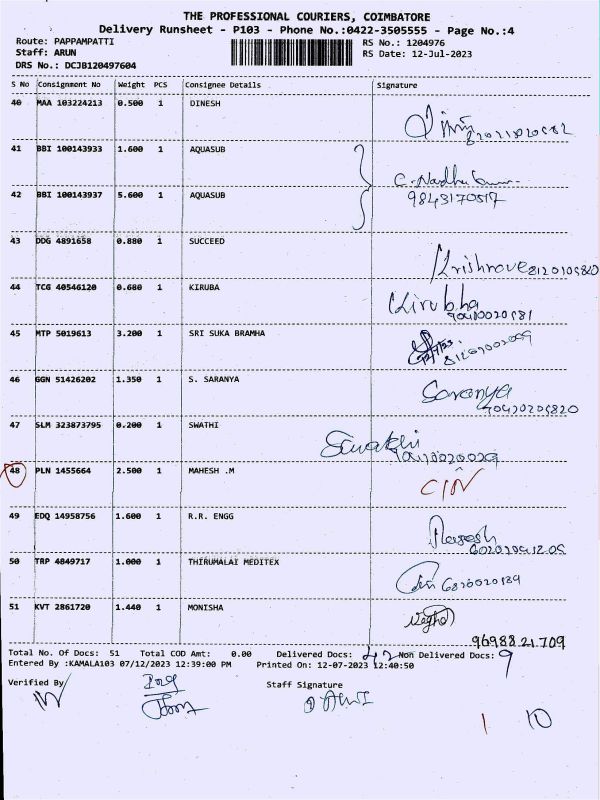 THE PROFESSIONAL COURIERS, COIMBATORE
Delivery Runsheet - P103 - Phone No.:0422-3505555 - Page No.:4
Route: PAPPAMPATTI RS No.: 1204976
Staff: ARUN RS Date: 12-Jul-2023
DRS No.: DCJB120497604
S No Consignment No Weight PCS Consignee Details Signature
40 MAA 103224213 0.500 1 DINESH
41 BBI 100143933 1.600 1 AQUASUB
42 BBI 100143937 5.600 1 AQUASUB
9843170517
43 DDG 4891658 0.880 1 SUCCEED
44 TCG 40546120 0.680 1 KIRUBA
Kirubha
45 MTP 5019613 3.200 1 SRI SUKA BRAMHA
46 GGN 51426202 1.350 1 S. SARANYA
Saranya
47 SLM 323873795 0.200 1 SWATHI
Swathi
48 PLN 1455664 2.500 1 MAHESH .M
49 EDQ 14958756 1.600 1 R.R. ENGG
50 TRP 4849717 1.000 1 THIRUMALAI MEDITEX
51 KVT 2861720 1.440 1 MONISHA
9698821709
Total No. Of Docs: 51 Total COD Amt: 0.00 Delivered Docs: 42 Non Delivered Docs: 9
Entered By :KAMALA103 07/12/2023 12:39:00 PM Printed On: 12-07-2023 12:40:50
Verified By Staff Signature
1 10